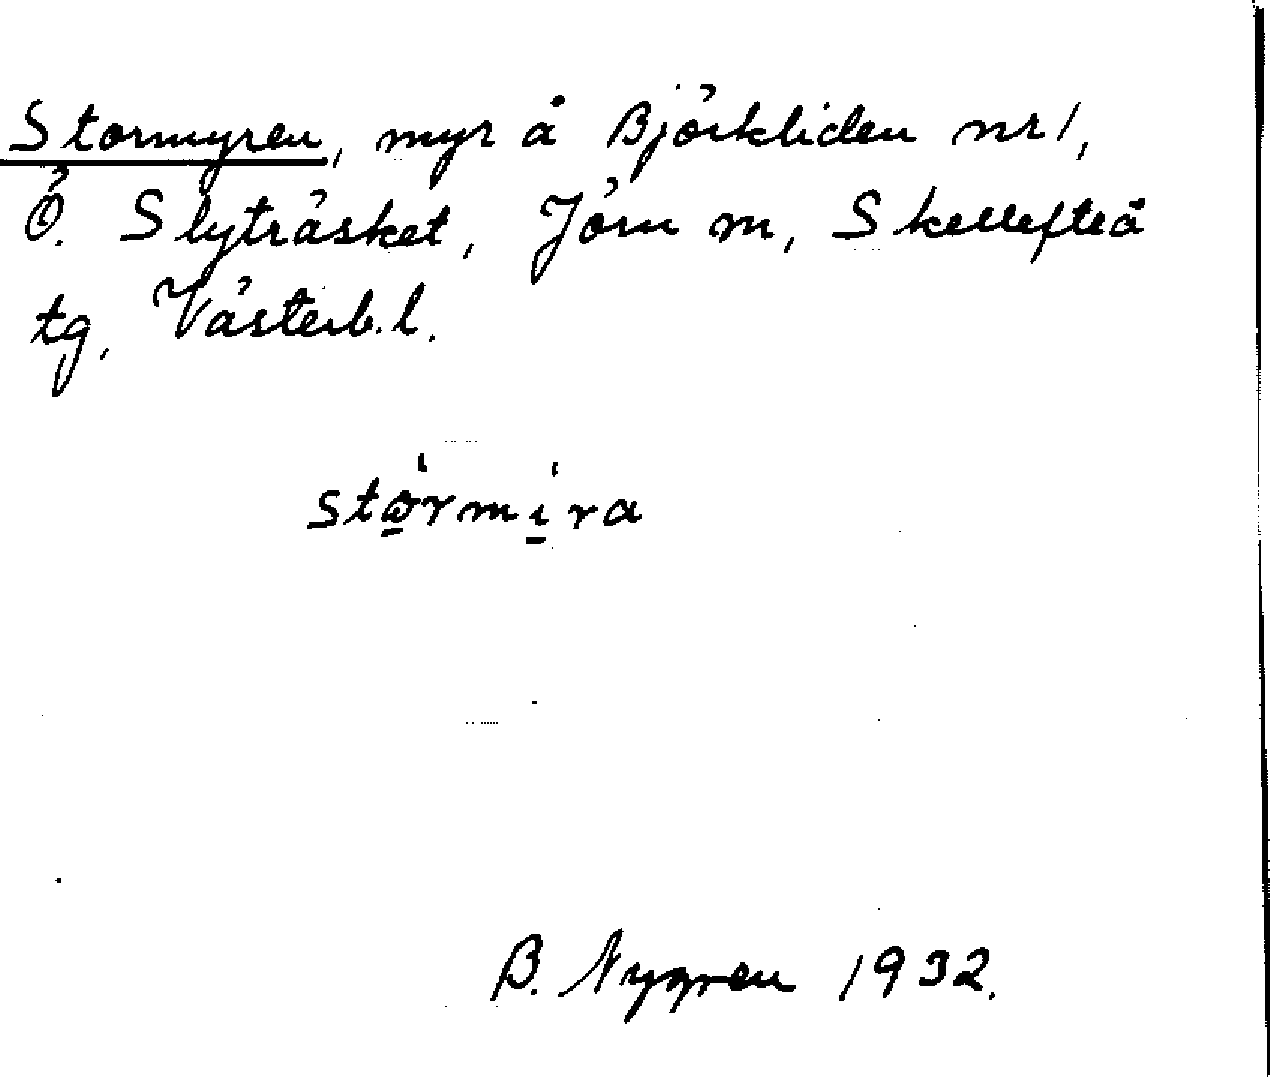 Stormyren, myr å Björkliden nr 1,
Ö. Slyträsket, Jörn m, Skellefteå
tg, Västerb. l.
stὼ̲rmì̲ra
B. Nygren 1932.